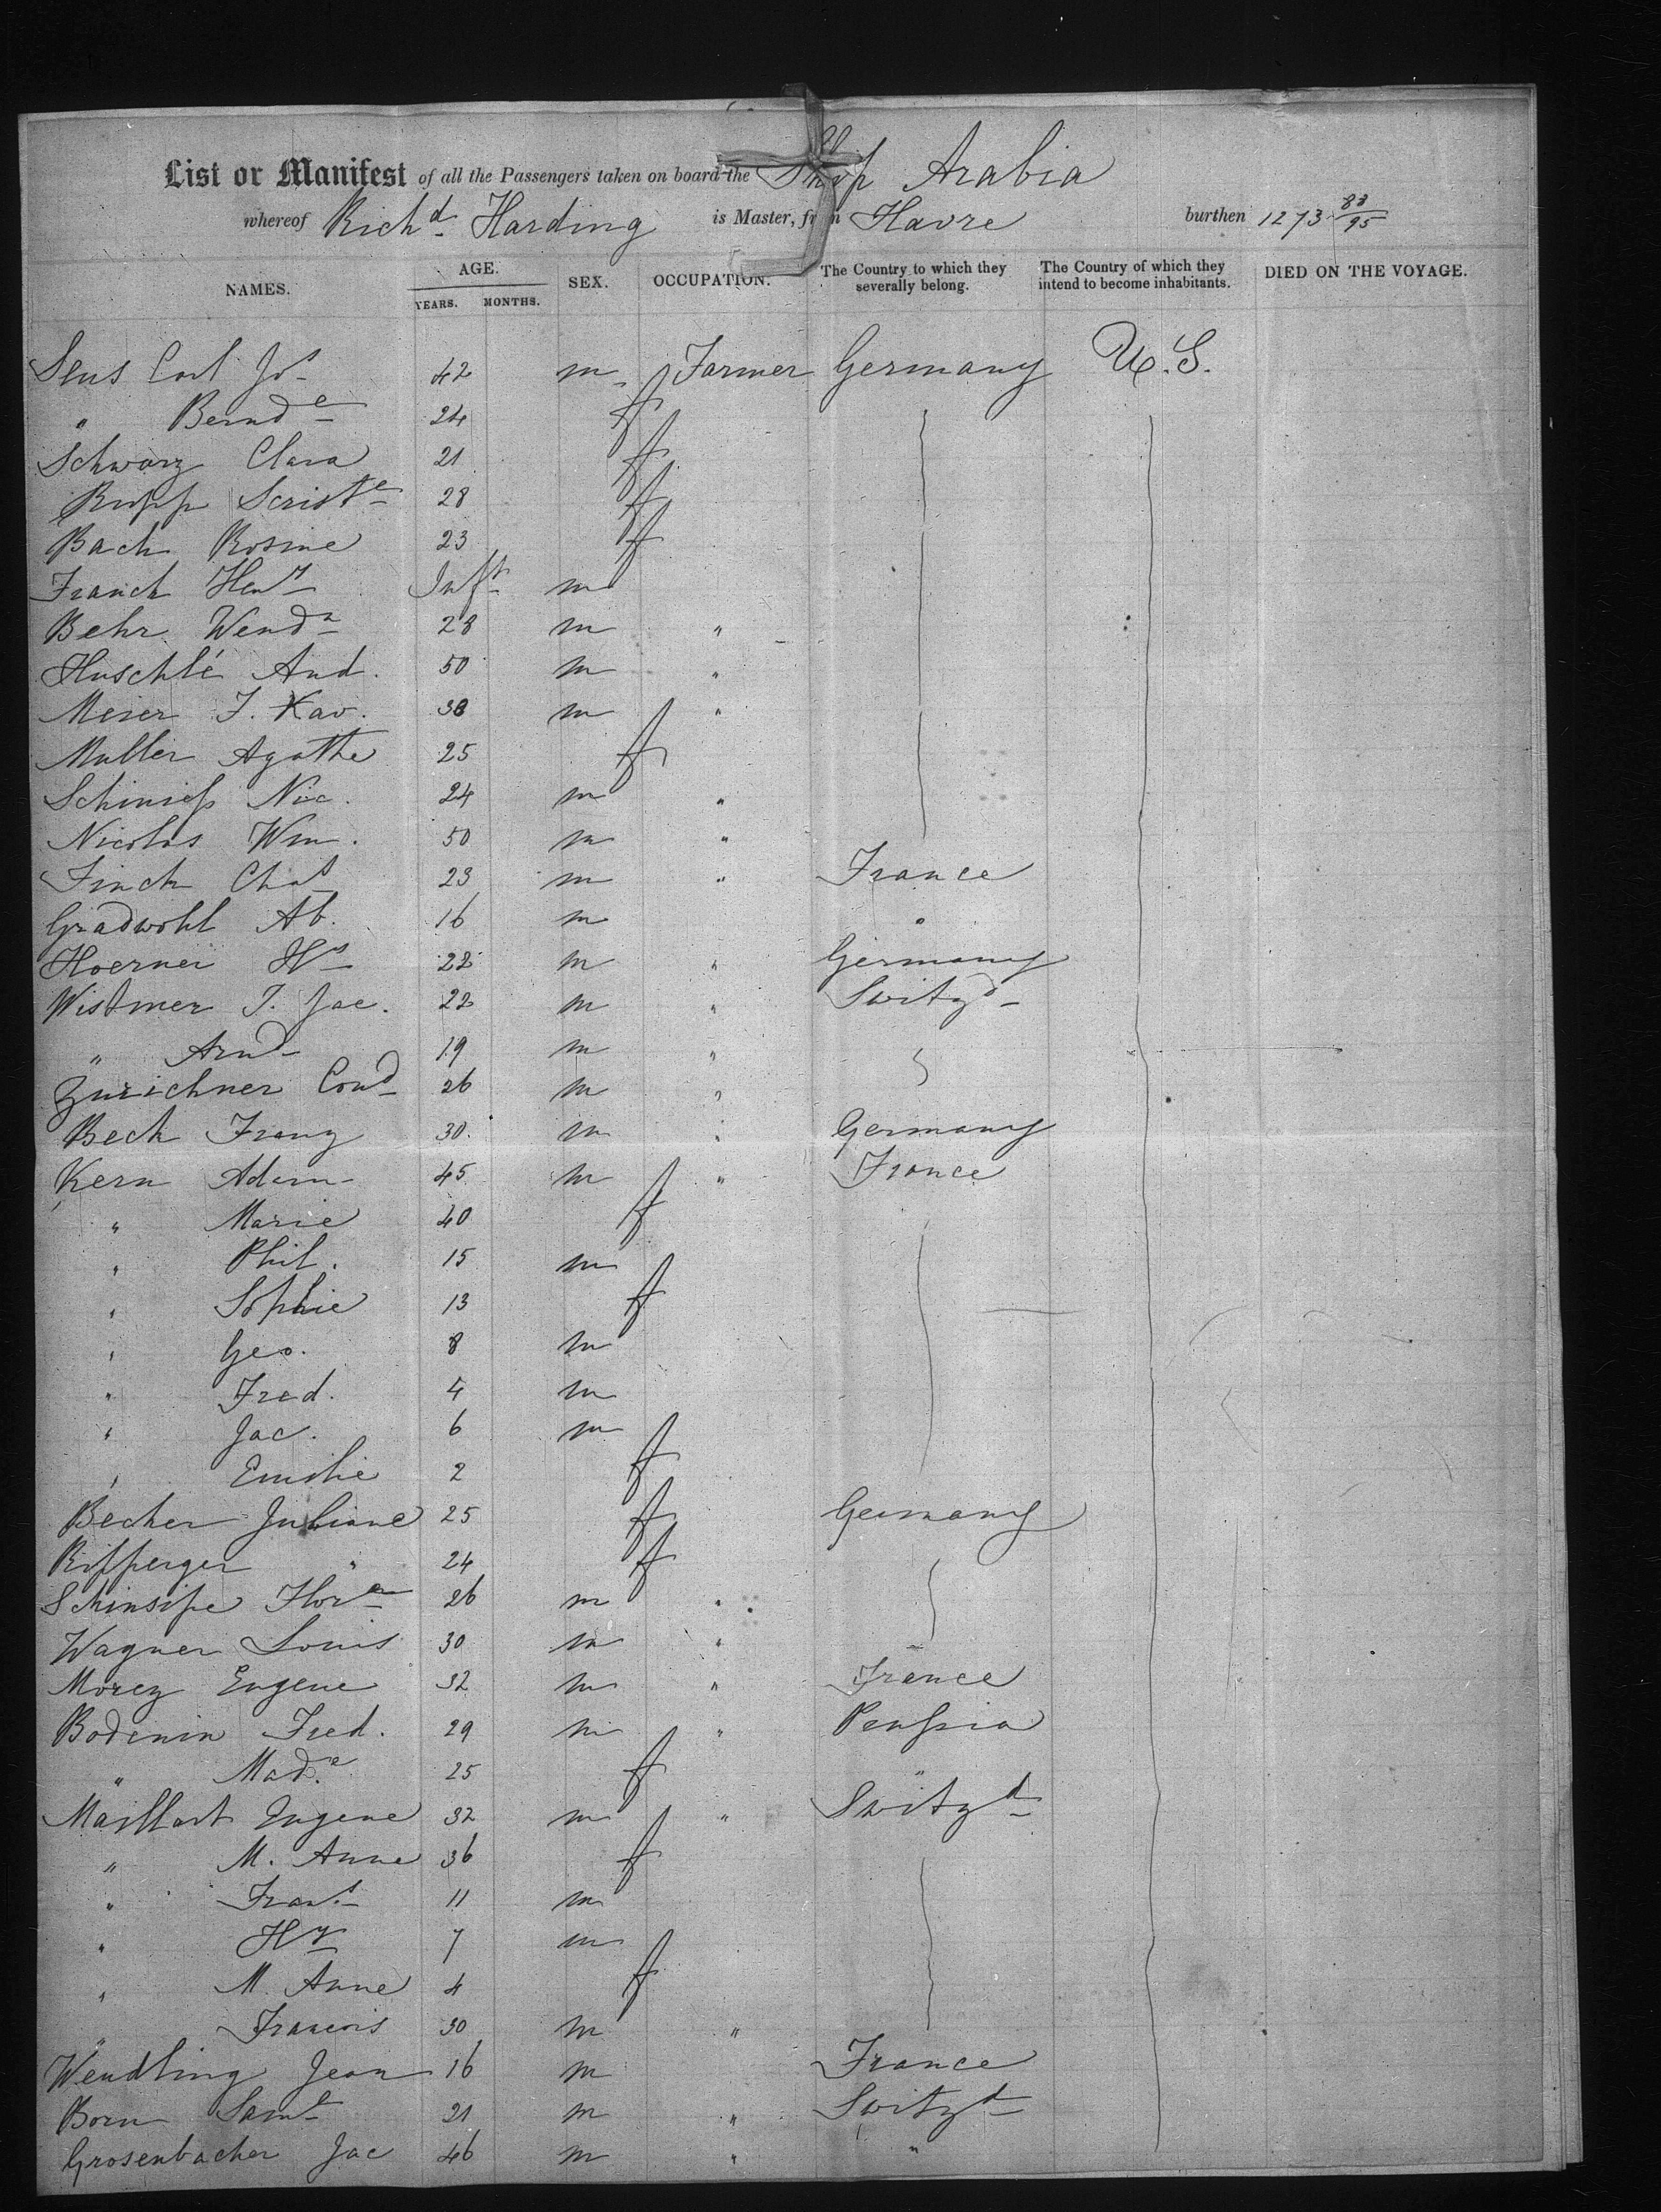 List or Manifest of all the Passengers taken on board the Ship Arabia
whereof Richd Harding is Master, from Havre burthen 1273 83/95
NAMES. AGE. YEARS. MONTHS. SEX. OCCUPATION. The Country to which they severally belong. The Country of which they intend to become inhabitants. DIED ON THE VOYAGE.
Sens Carl Js 42 m Farmer Germany U.S.
" Bernde 24 f
Schwarz Clara 21 f
Rupp 28 f
Bach Rosine 23 f
Franck Heny Inft m
Behr Wendn 28 m "
Huschlé And. 50 m "
Meier F. Xav. 38 m "
Muller Agathe 25 f
Nic. 24 m "
Nicolas Wm. 50 m "
Finck Chas 23 m " France
Gradwohl Ab. 16 m "
Hoerner 22 m " Germany
Wistmer J. Jac. 22 m " Switzd
" Arnd 19 m "
Zurichner Cond 26 m "
Beck Franz 30 m " Germany
Kern Adam 45 m " France
" Marie 40 f
" Phil. 15 m
" Sophie 13 f
" Geo. 8 m
" Fred. 4 m
" Jac. 6 m
" Emilie 2 f
Becher Juliane 25 f Germany
Ripperger " 24 f
26 m "
Wagner Louis 30 m "
Morez Eugene 32 m " France
Bodenin Fred. 29 m " Prussia
" Made 25 f "
Maillart Eugene 32 m " Switzd
" M. Anne 36 f
" Frans 11 m
" Hy 7 m
" M. Anne 4 f
" Francois 30 m "
Wendling Jean 16 m France
Born Saml 21 m " Switzd
Grosenbacher Jac 46 m " "